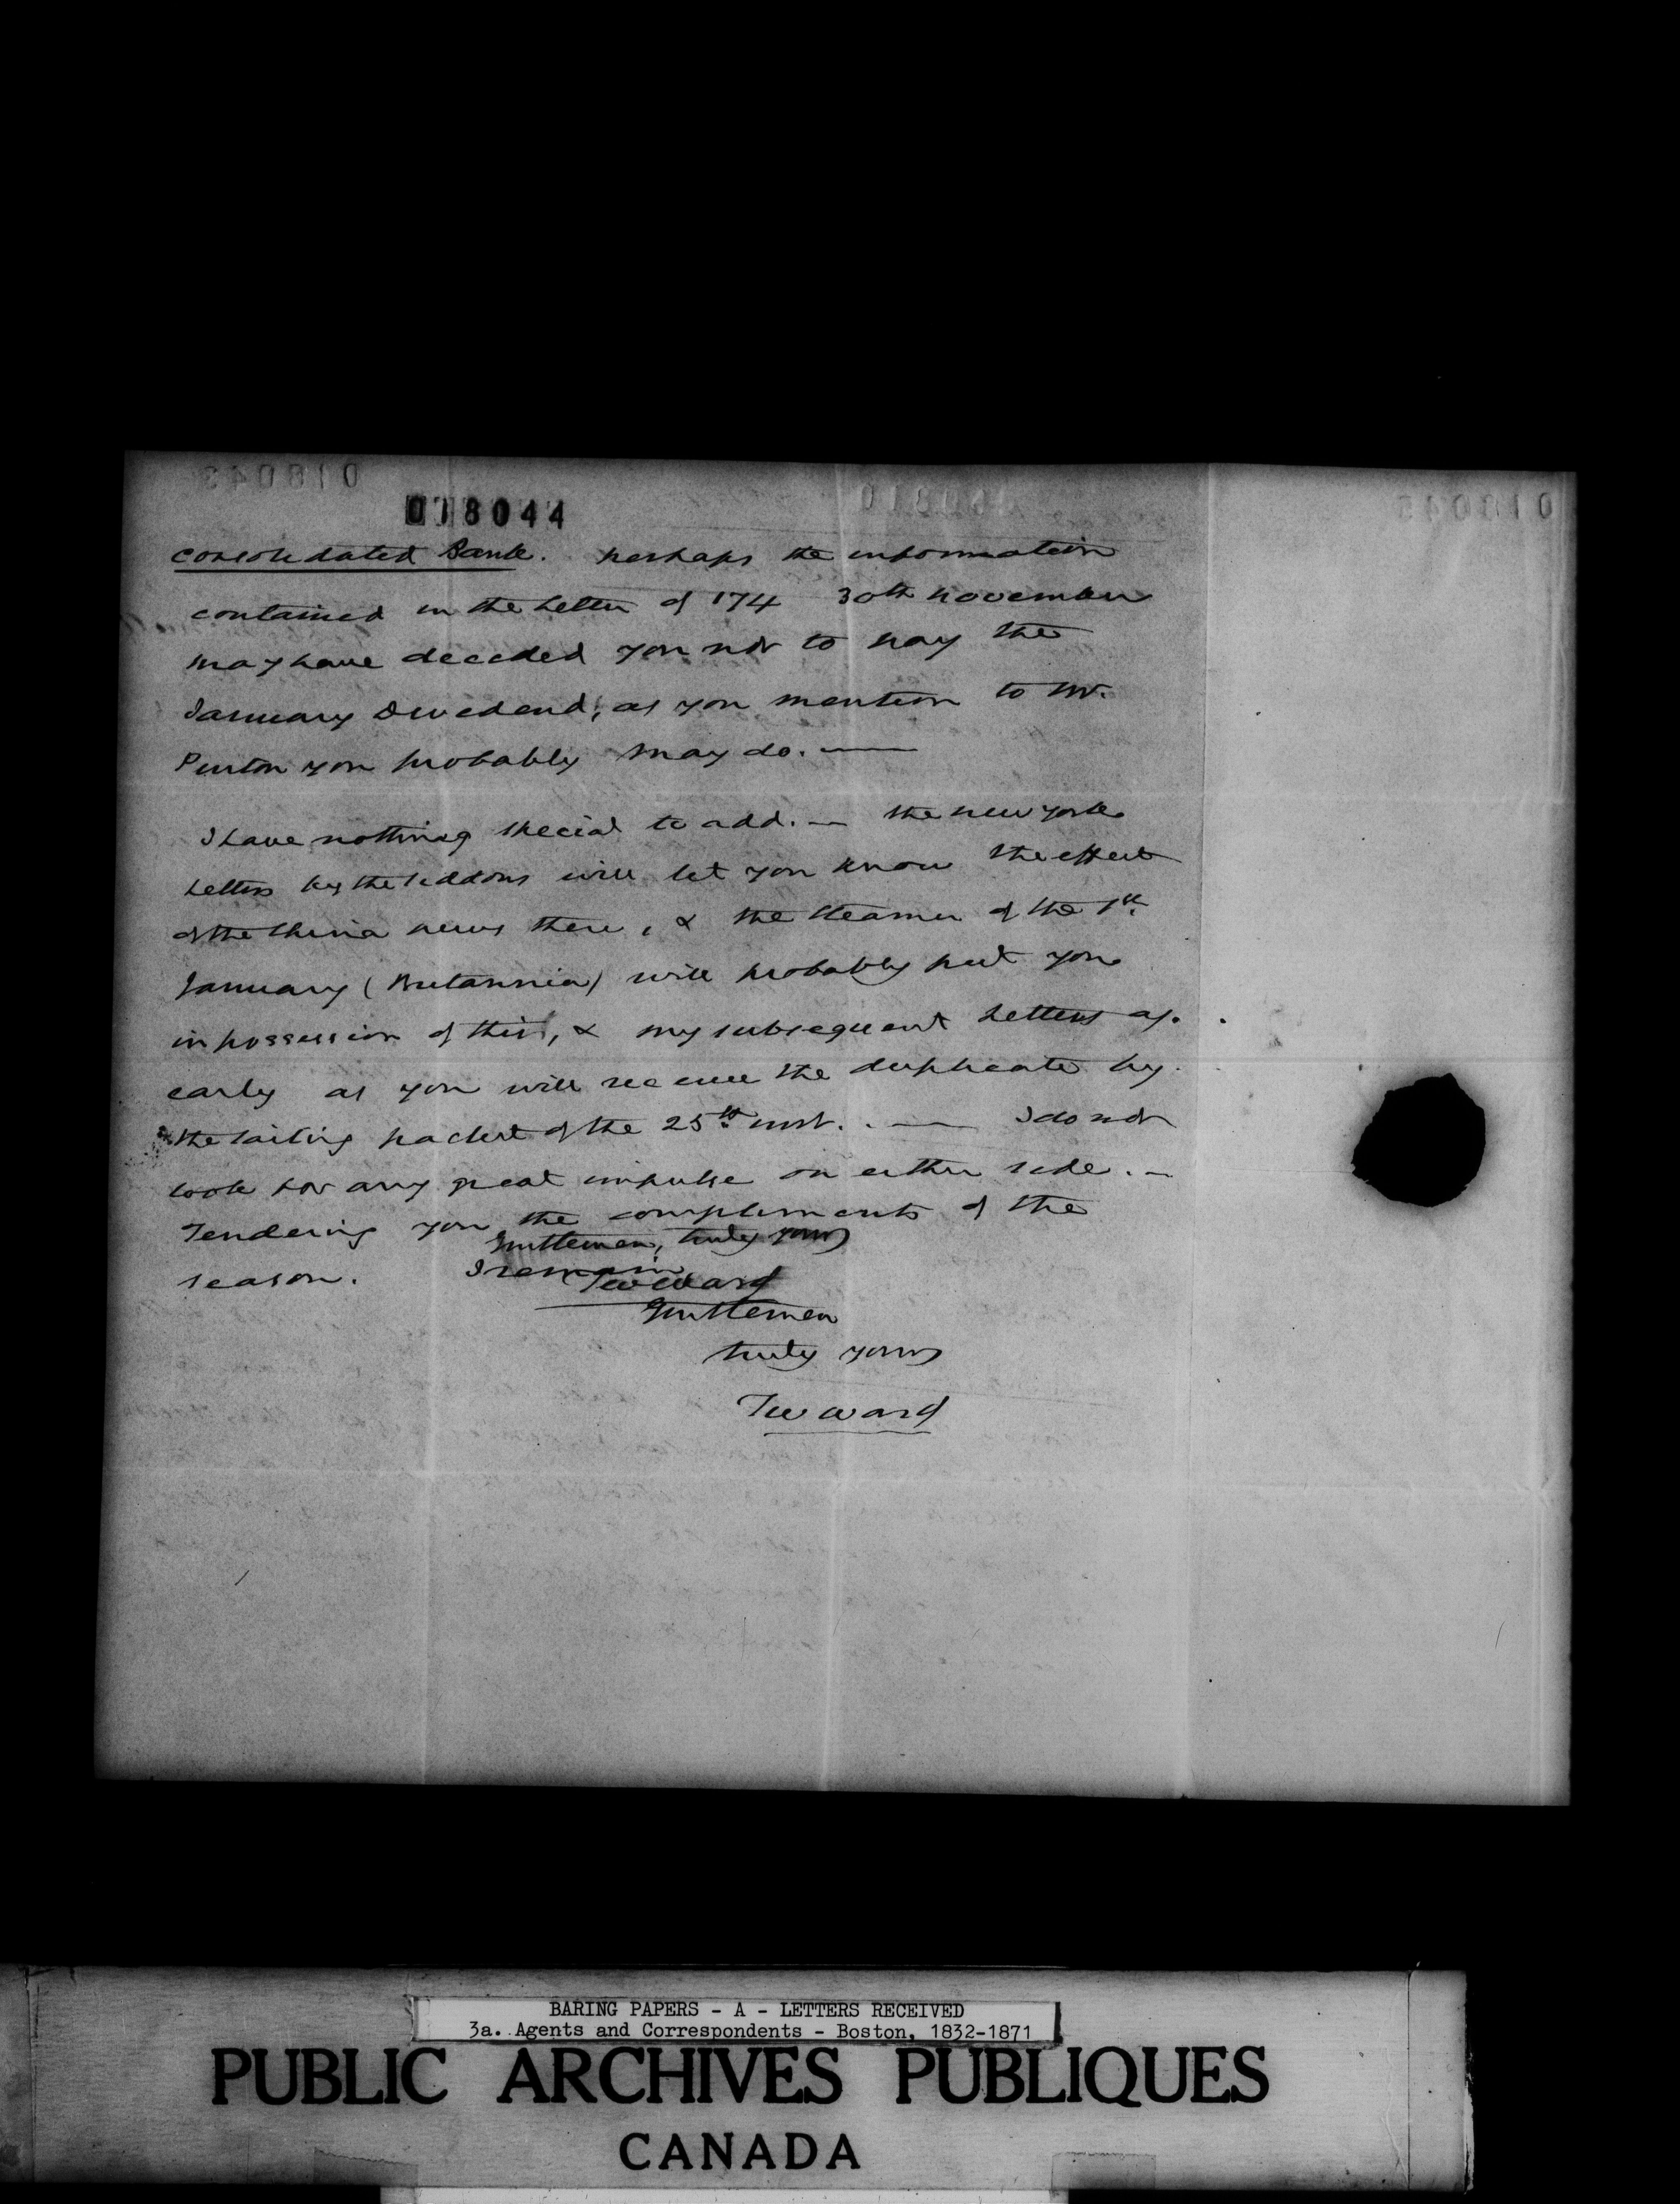 018044
consolidated Bank. perhaps the information
contained in the Letter of 174 30th November
may have decided you not to pay the
January Dividend, as you mention to Mr.
you probably may do. —
I have nothing special to add. — the New York
Letters by the Siddons will let you know the effect
of the China news there, & the steamer of the 1st
January (Britannia) will probably put you
in possession of this, & my subsequent Letters as
early as you will receive the duplicate by
the sailing packet of the 25th inst. . — I do not
look for any great impulse on either side. —
Tendering you the compliments of the
season. I remain
Gentlemen, truly yours
TW Ward
Gentlemen
truly yours
TW Ward
BARING PAPERS - A - LETTERS RECEIVED
3a. Agents and Correspondents - Boston, 1832-1871
PUBLIC ARCHIVES PUBLIQUES
CANADA